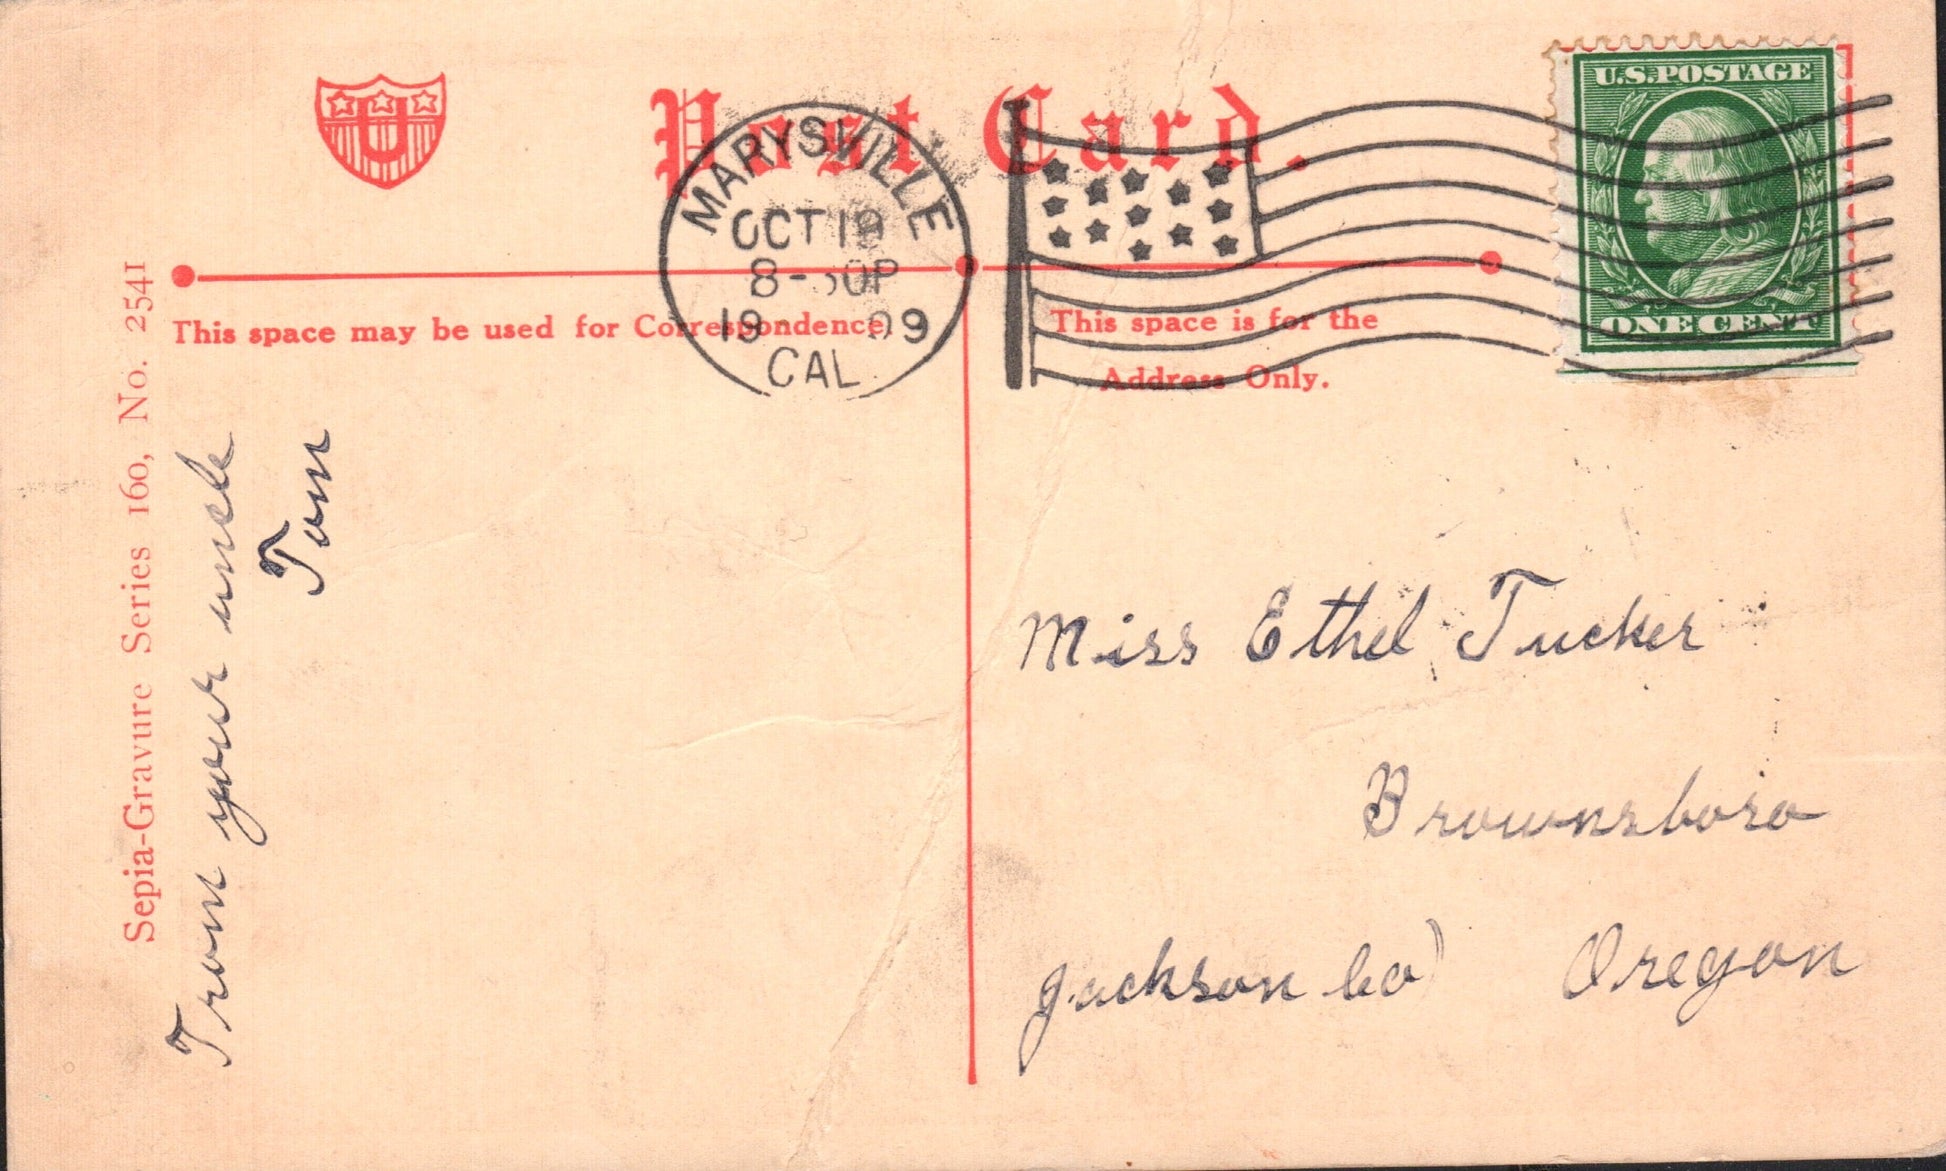 U
Post Card.
MARYSVILLE
OCT 19
8-30P
1909
CAL.
U.S. POSTAGE
ONE CENT
This space may be used for Correspondence,
This space is for the
Address Only.
Sepia-Gravure Series 160, No. 2541
From your uncle
Tom
Miss Ethel Tucker
Brownsboro
Jackson Co) Oregon